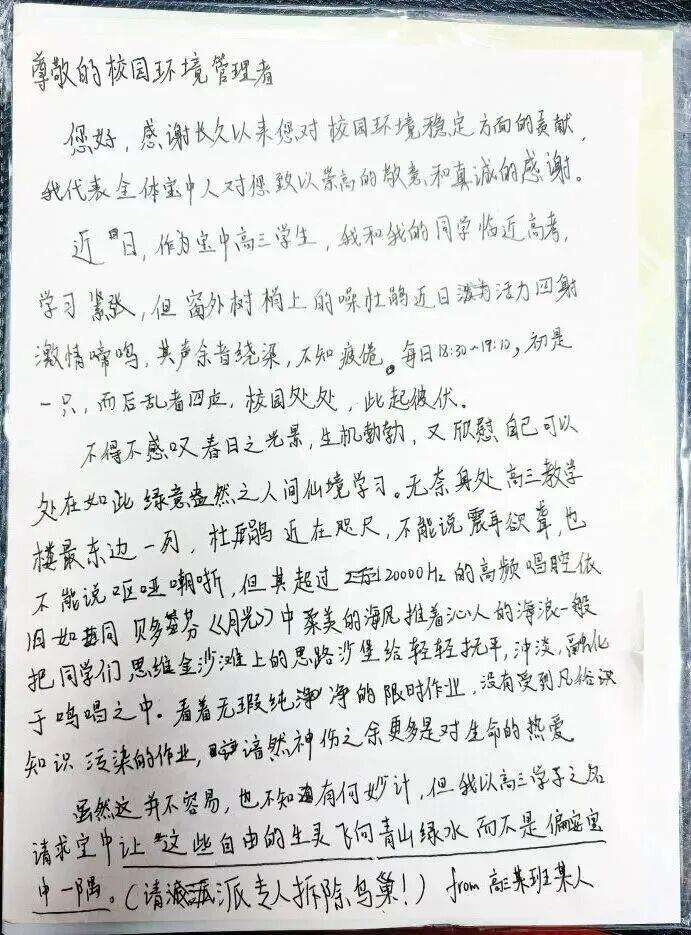 尊敬的校园环境管理者
您好，感谢长久以来您对校园环境稳定方面的贡献，
我代表全体宝中人对您致以崇高的敬意和真诚的感谢。
近日，作为宝中高三学生，我和我的同学临近高考，
学习紧张，但窗外树梢上的噪杜鹃近日活力四射
激情啼鸣，其声余音绕梁，不知疲倦。每日18:30~19:10，初是
一只，而后乱者四应，校园处处，此起彼伏。
不得不感叹春日之光景，生机勃勃，又欣慰自己可以
处在如此绿意盎然之人间仙境学习。无奈身处高三教学
楼最东边一列，杜鹃近在咫尺，不能说震耳欲聋，也
不能说呕哑嘲哳，但其超过20000Hz的高频唱腔依
旧如同贝多芬《月光》中柔美的海风推着沁人的海浪一般
把同学们思维金沙滩上的思路沙堡给轻轻抚平，冲淡，融化
于鸣唱之中。看着无瑕纯净的限时作业，没有受到凡俗
知识污染的作业，谙然神伤之余更多是对生命的热爱
虽然这并不容易，也不知有何妙计，但我以高三学子之名
请求宝中让这些自由的生灵飞向青山绿水而不是偏安宝
中一隅。（请派专人拆除鸟巢！）from 高三某班某人